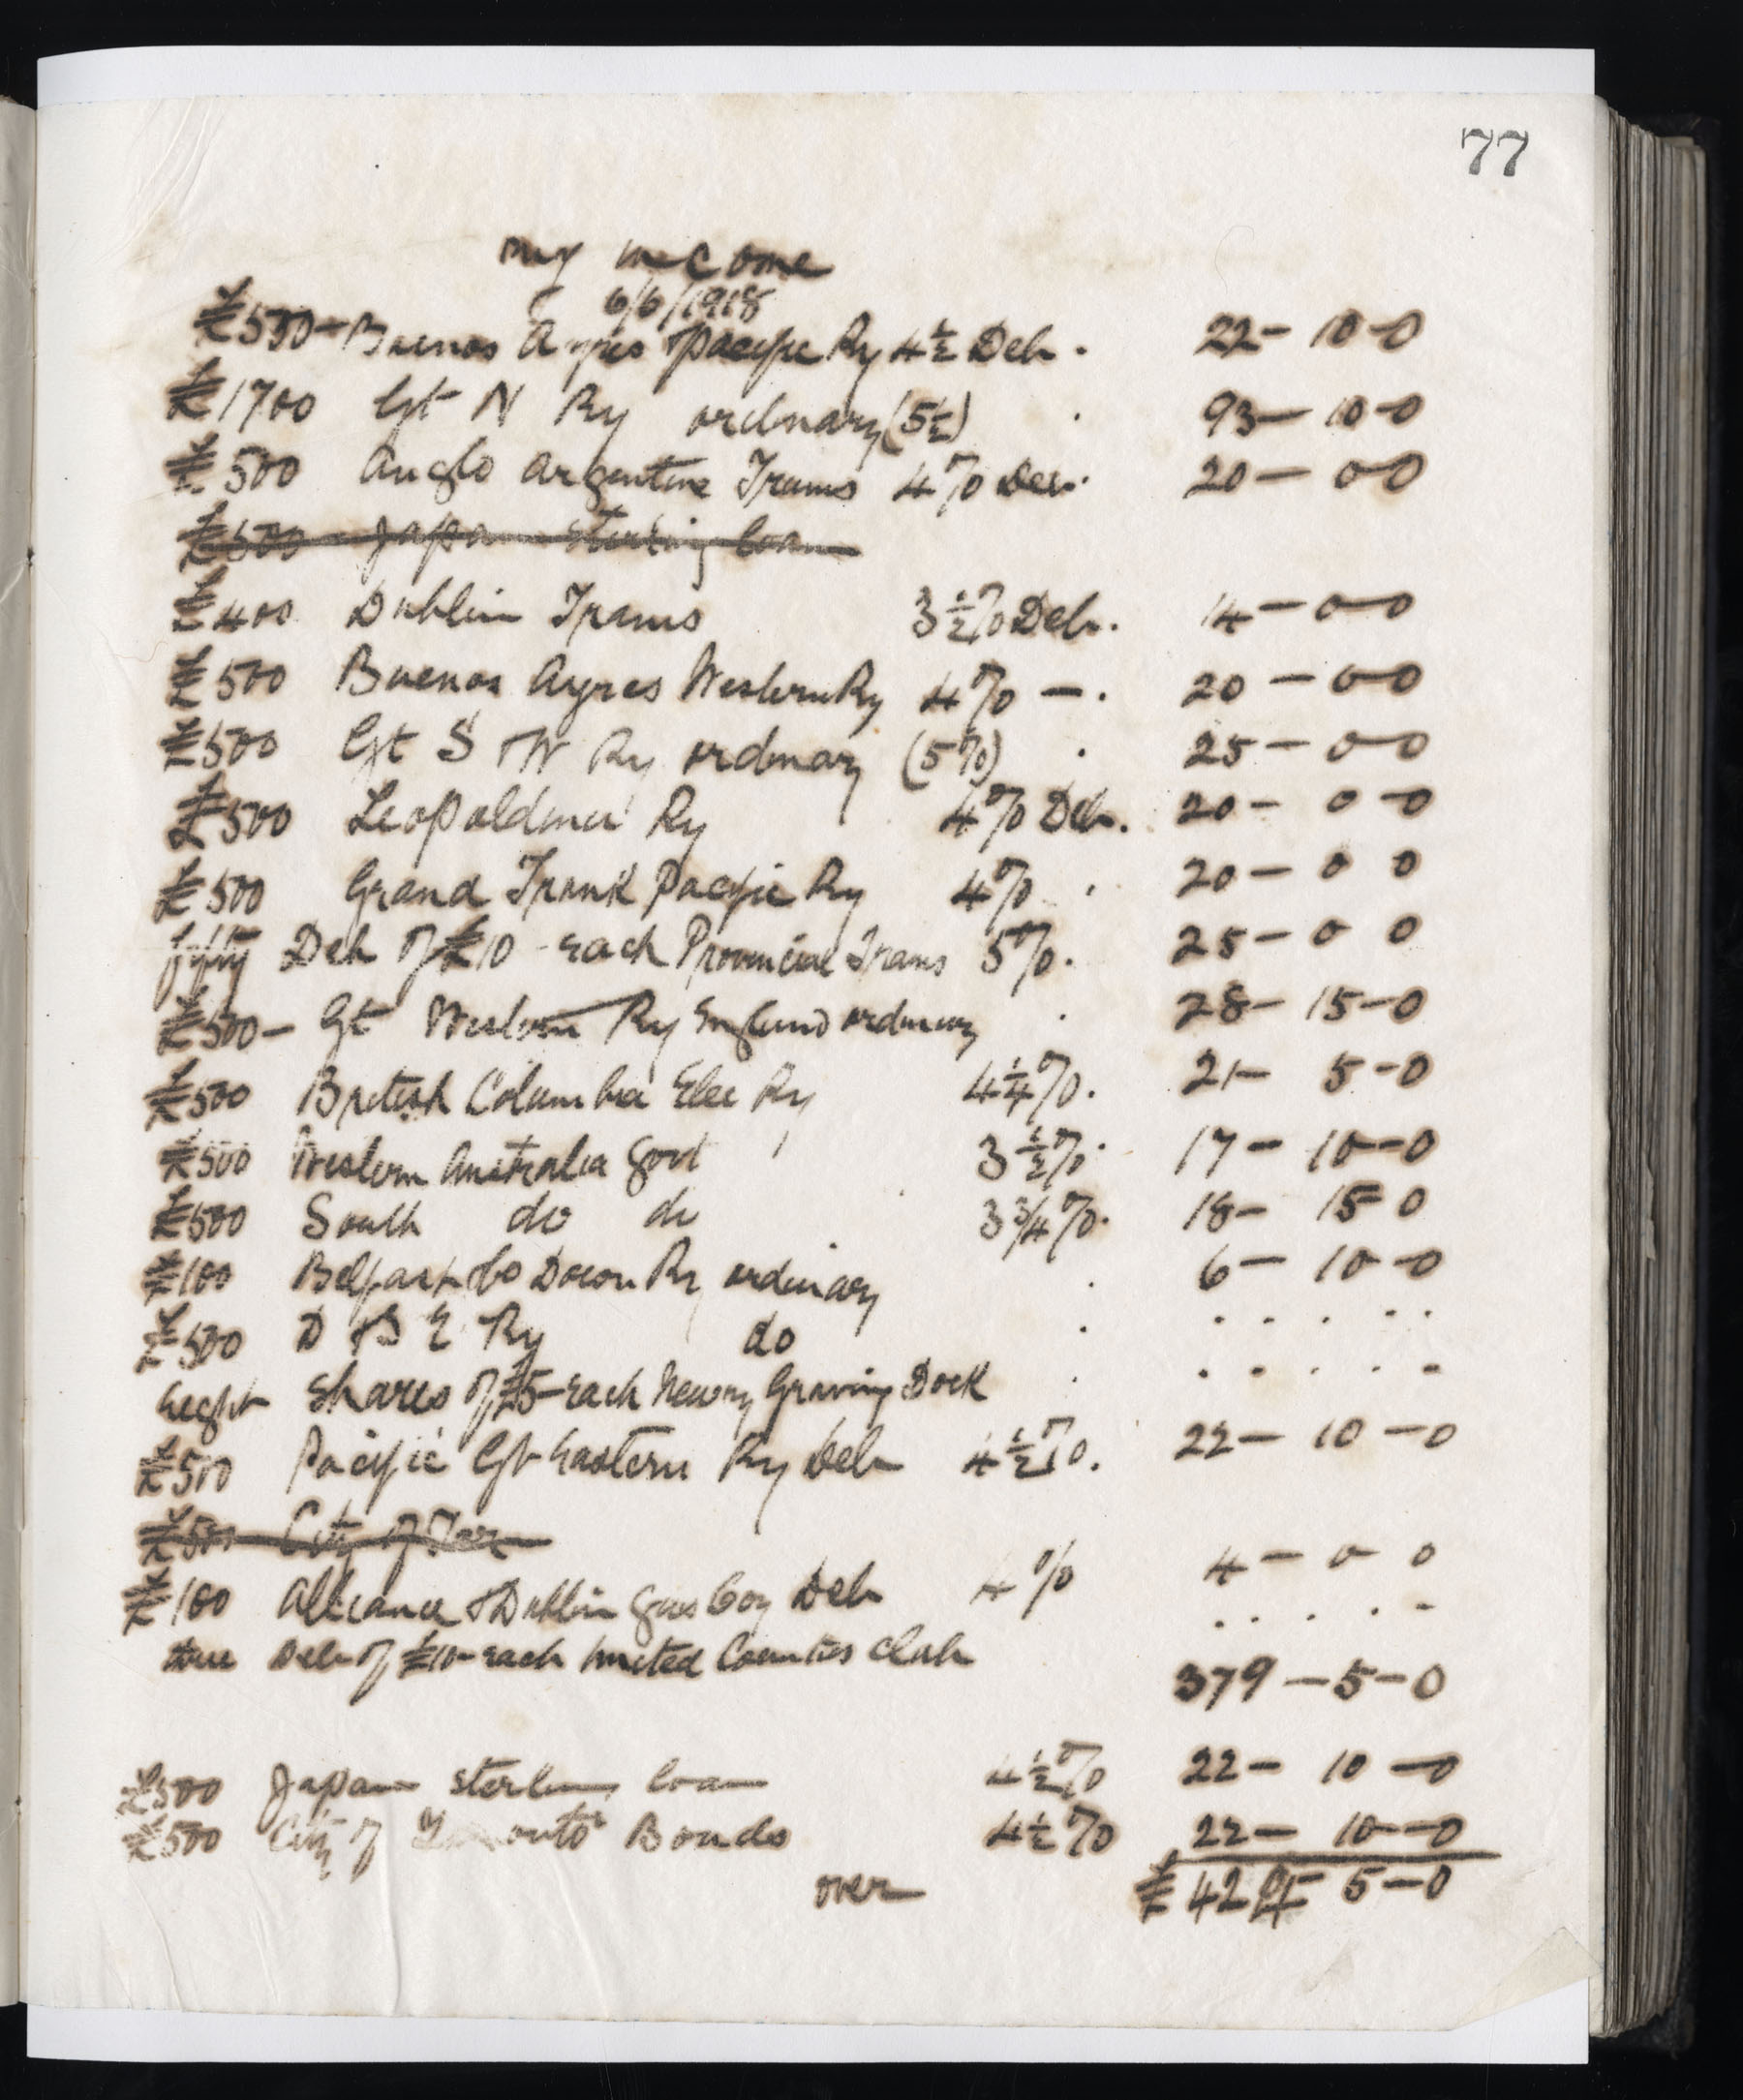 77
my income
6/6/1918
£500- Buenos Ayres Pacific Ry 4½ Deb . 22 - 10 - 0
£1700 Gt N Ry ordinary (5½) . 93 - 10 - 0
£500 Anglo Argentine Trams 4% Deb. 20 - 0 - 0
£500 - Japan sterling loan
£400 Dublin Trams 3½% Deb. 14 - 0 - 0
£500 Buenos Ayres Western Ry 4% - . 20 - 0 - 0
£500 Gt S & W Ry ordinary (5%) . 25 - 0 - 0
£500 Leopoldina Ry 4% Deb. 20 - 0 - 0
£500 Grand Trunk Pacific Ry 4% . 20 - 0 0
fifty Deb of £10 - each Provincial Trams 5%. 25 - 0 0
£500 - Gt Western Ry England ordinary . 28 - 15 - 0
£500 British Columbia Elec Ry 4¼%. 21 - 5 - 0
£500 Western Australia Govt 3½%. 17 - 10 - 0
£500 South do do 3¾%. 18 - 15 - 0
£100 Belfast & Co Down Ry ordinary . 6 - 10 - 0
£500 D & S E Ry do . . . . . .
Eight shares of £5 - each Newry Graving Dock . . . . . -
£500 Pacific Gt Eastern Ry Deb 4½%. 22 - 10 - 0
£500 City of Tor
£100 Alliance & Dublin Gas Coy Deb 4% 4 - 0 0
three Deb of £10 - each United Counties Club . . . . -
379 - 5 - 0
£500 Japan sterling loan 4½% 22 - 10 - 0
£500 City of Toronto Bonds 4½% 22 - 10 - 0
over £ 424 - 5 - 0